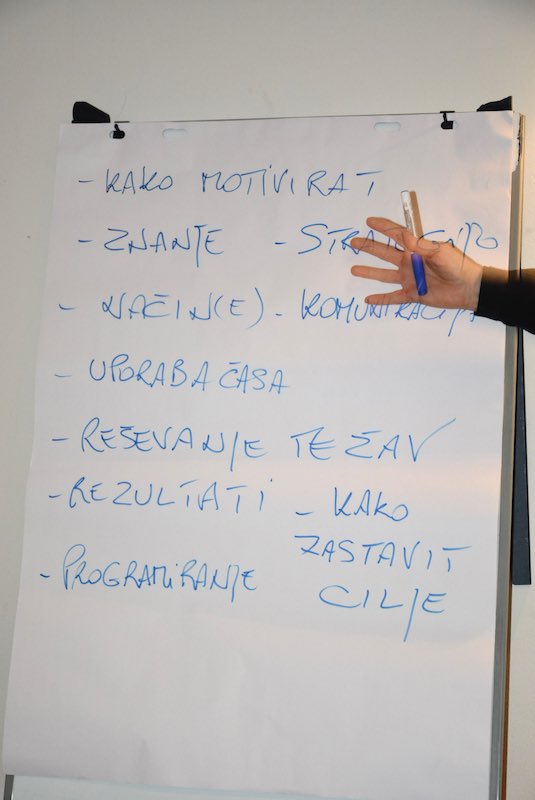 - KAKO MOTIVIRAT
- ZNANJE
- NAČIN(E) - KOMUNIKACIJA
- UPORABA ČASA
- REŠEVANJE TEŽAV
- REZULTATI
- KAKO
ZASTAVIT
CILJE
- PROGRAMIRANJE